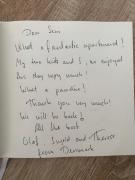 Dear Sirs
What a fantastic apartment!
My two kids and I, we enjoyed
this day very much!
What a paradise!
Thank you very much!
We will be back!
All the best
Olaf, Sigrid and Therese
from Denmark